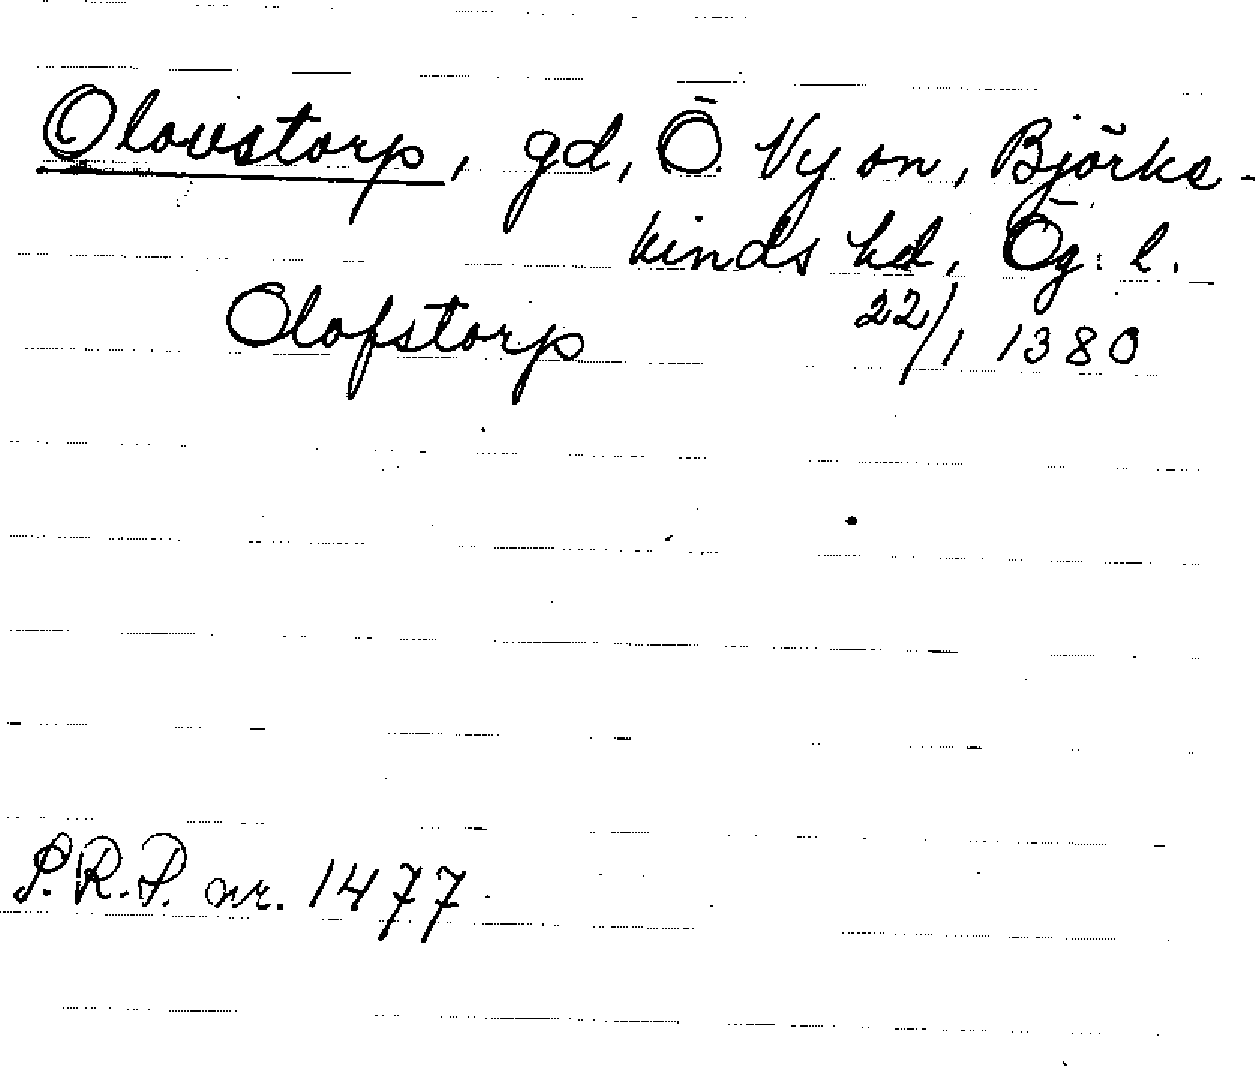 Olovstorp, gd, Ö. Ny sn, Björke-
kinds hd, Ög. l.
Olofstorp 22/1 1380
S.R.P. nr. 1477